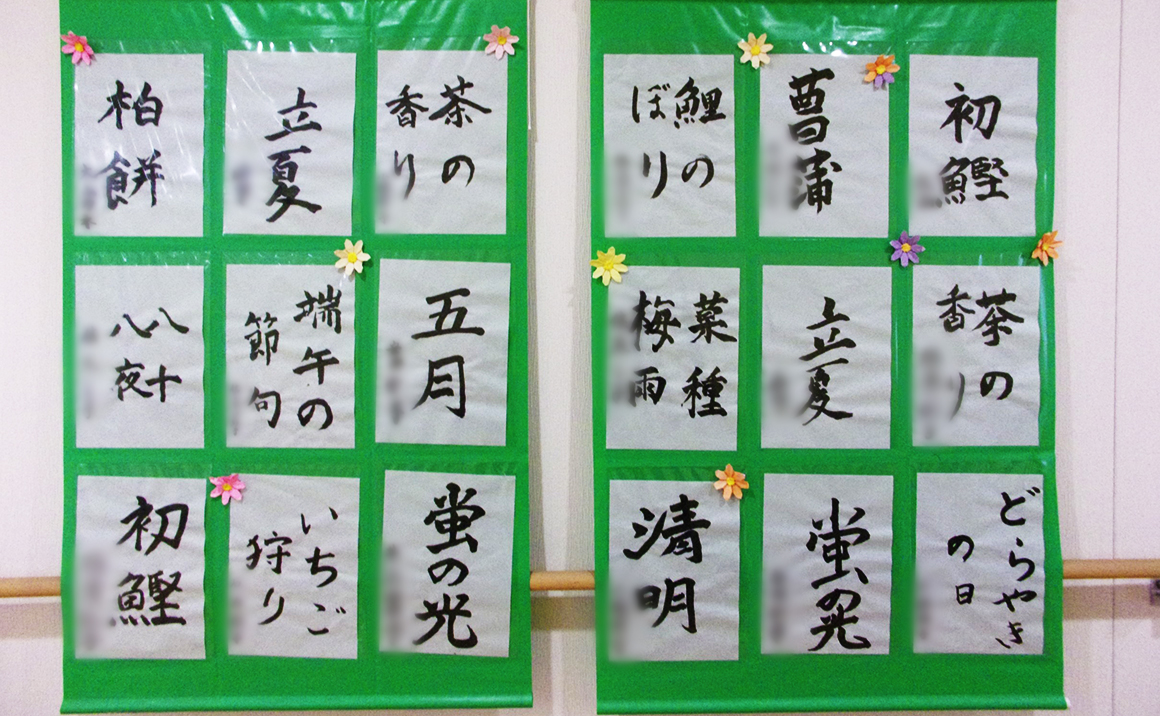 柏餅
立夏
茶の
香り
八十
八夜
端午の
節句
五月
初鰹
いちご
狩り
蛍の光
鯉の
ぼり
菖蒲
初鰹
菜種
梅雨
立夏
茶の
香り
清明
蛍の光
どらやき
の日